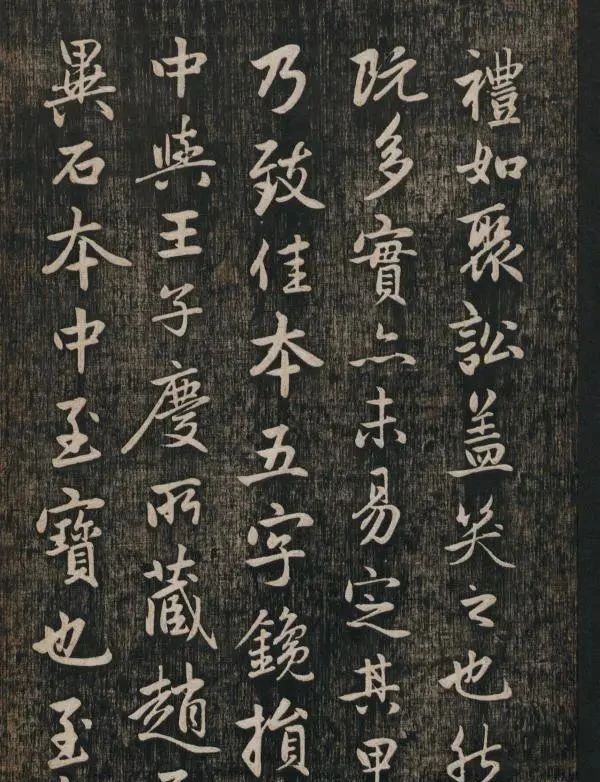 禮如聚訟蓋笑之也然
既多實亦未易定其甲
乃致佳本五字鑱損
中與王子慶所藏趙
異石本中至寶也至